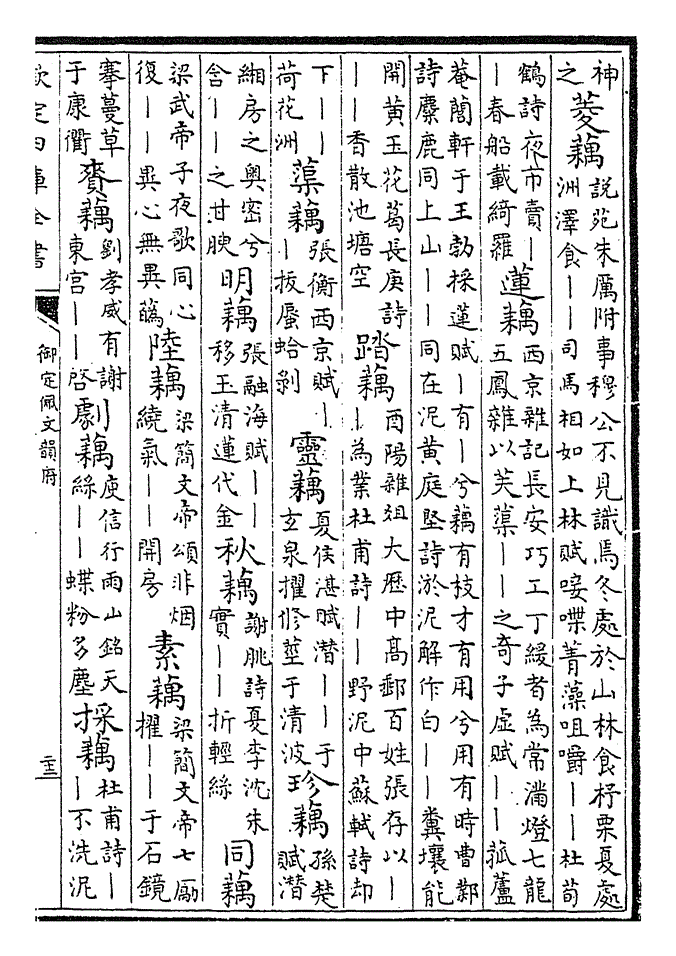 神
之
菱藕
說苑朱厲附事穆公不見識焉冬處於山林食杼栗夏處
洲澤食——司馬相如上林賦唼喋菁藻咀嚼——杜荀
鶴詩夜市賣—
—春船載綺羅
蓮藕
西京雜記長安巧工丁緩者為常滿燈七龍
五鳳雜以芙蕖——之奇子虛賦——菰蘆
菴䕡軒于王勃採蓮賦—有—兮藕有枝才有用兮用有時曹鄴
詩麋鹿同上山——同在泥黃庭堅詩淤泥解作白——糞壤能
開黃玉花葛長庚詩
——香散池塘空
踏藕
酉陽雜俎大厯中高郵百姓張存以—
—為業杜甫詩——野泥中蘇軾詩却
下——
荷花洲
蕖藕
張衡西京賦—
—拔蜃蛤剝
靈藕
夏侯湛賦潜——于
玄泉擢修莖于清波
珍藕
孫楚
賦潜
緗房之奥密兮
含——之甘腴
明藕
張融海賦——
移玉清蓮代金
秋藕
謝朓詩夏李沈朱
實——折輕絲
同藕
梁武帝子夜歌同心
復——異心無異藕
陸藕
梁簡文帝頌非烟
繞氣——開房
素藕
梁簡文帝七勵
擢——于石鏡
搴蔓草
于康衢
賚藕
劉孝威有謝—
東宮——啓
劇藕
庾信行雨山銘天
絲——蝶粉多塵
採藕
杜甫詩—
—不洗泥
欽定四庫全書
御定佩文韻府
二十三